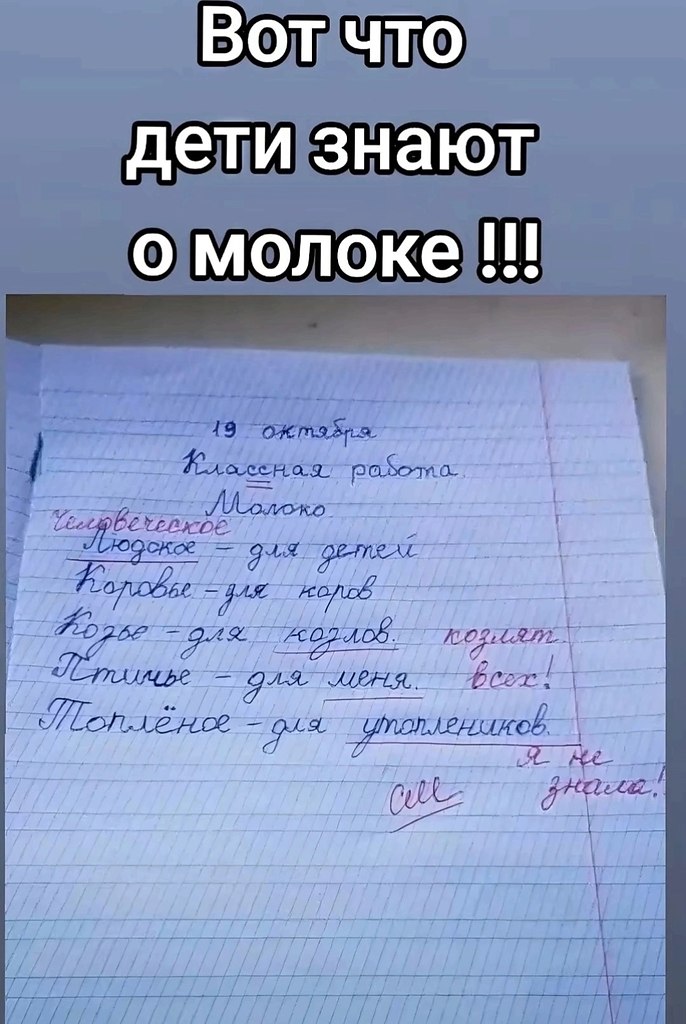 Вот что
дети знают
о молоке !!!
19 октября
Классная работа.
Молоко
человеческое
Людское - для детей
Коровье - для коров
Козье - для козлов. козлят
Птичье - для меня. всех!
Топлёное - для утоплеников.
я не
знала!
см